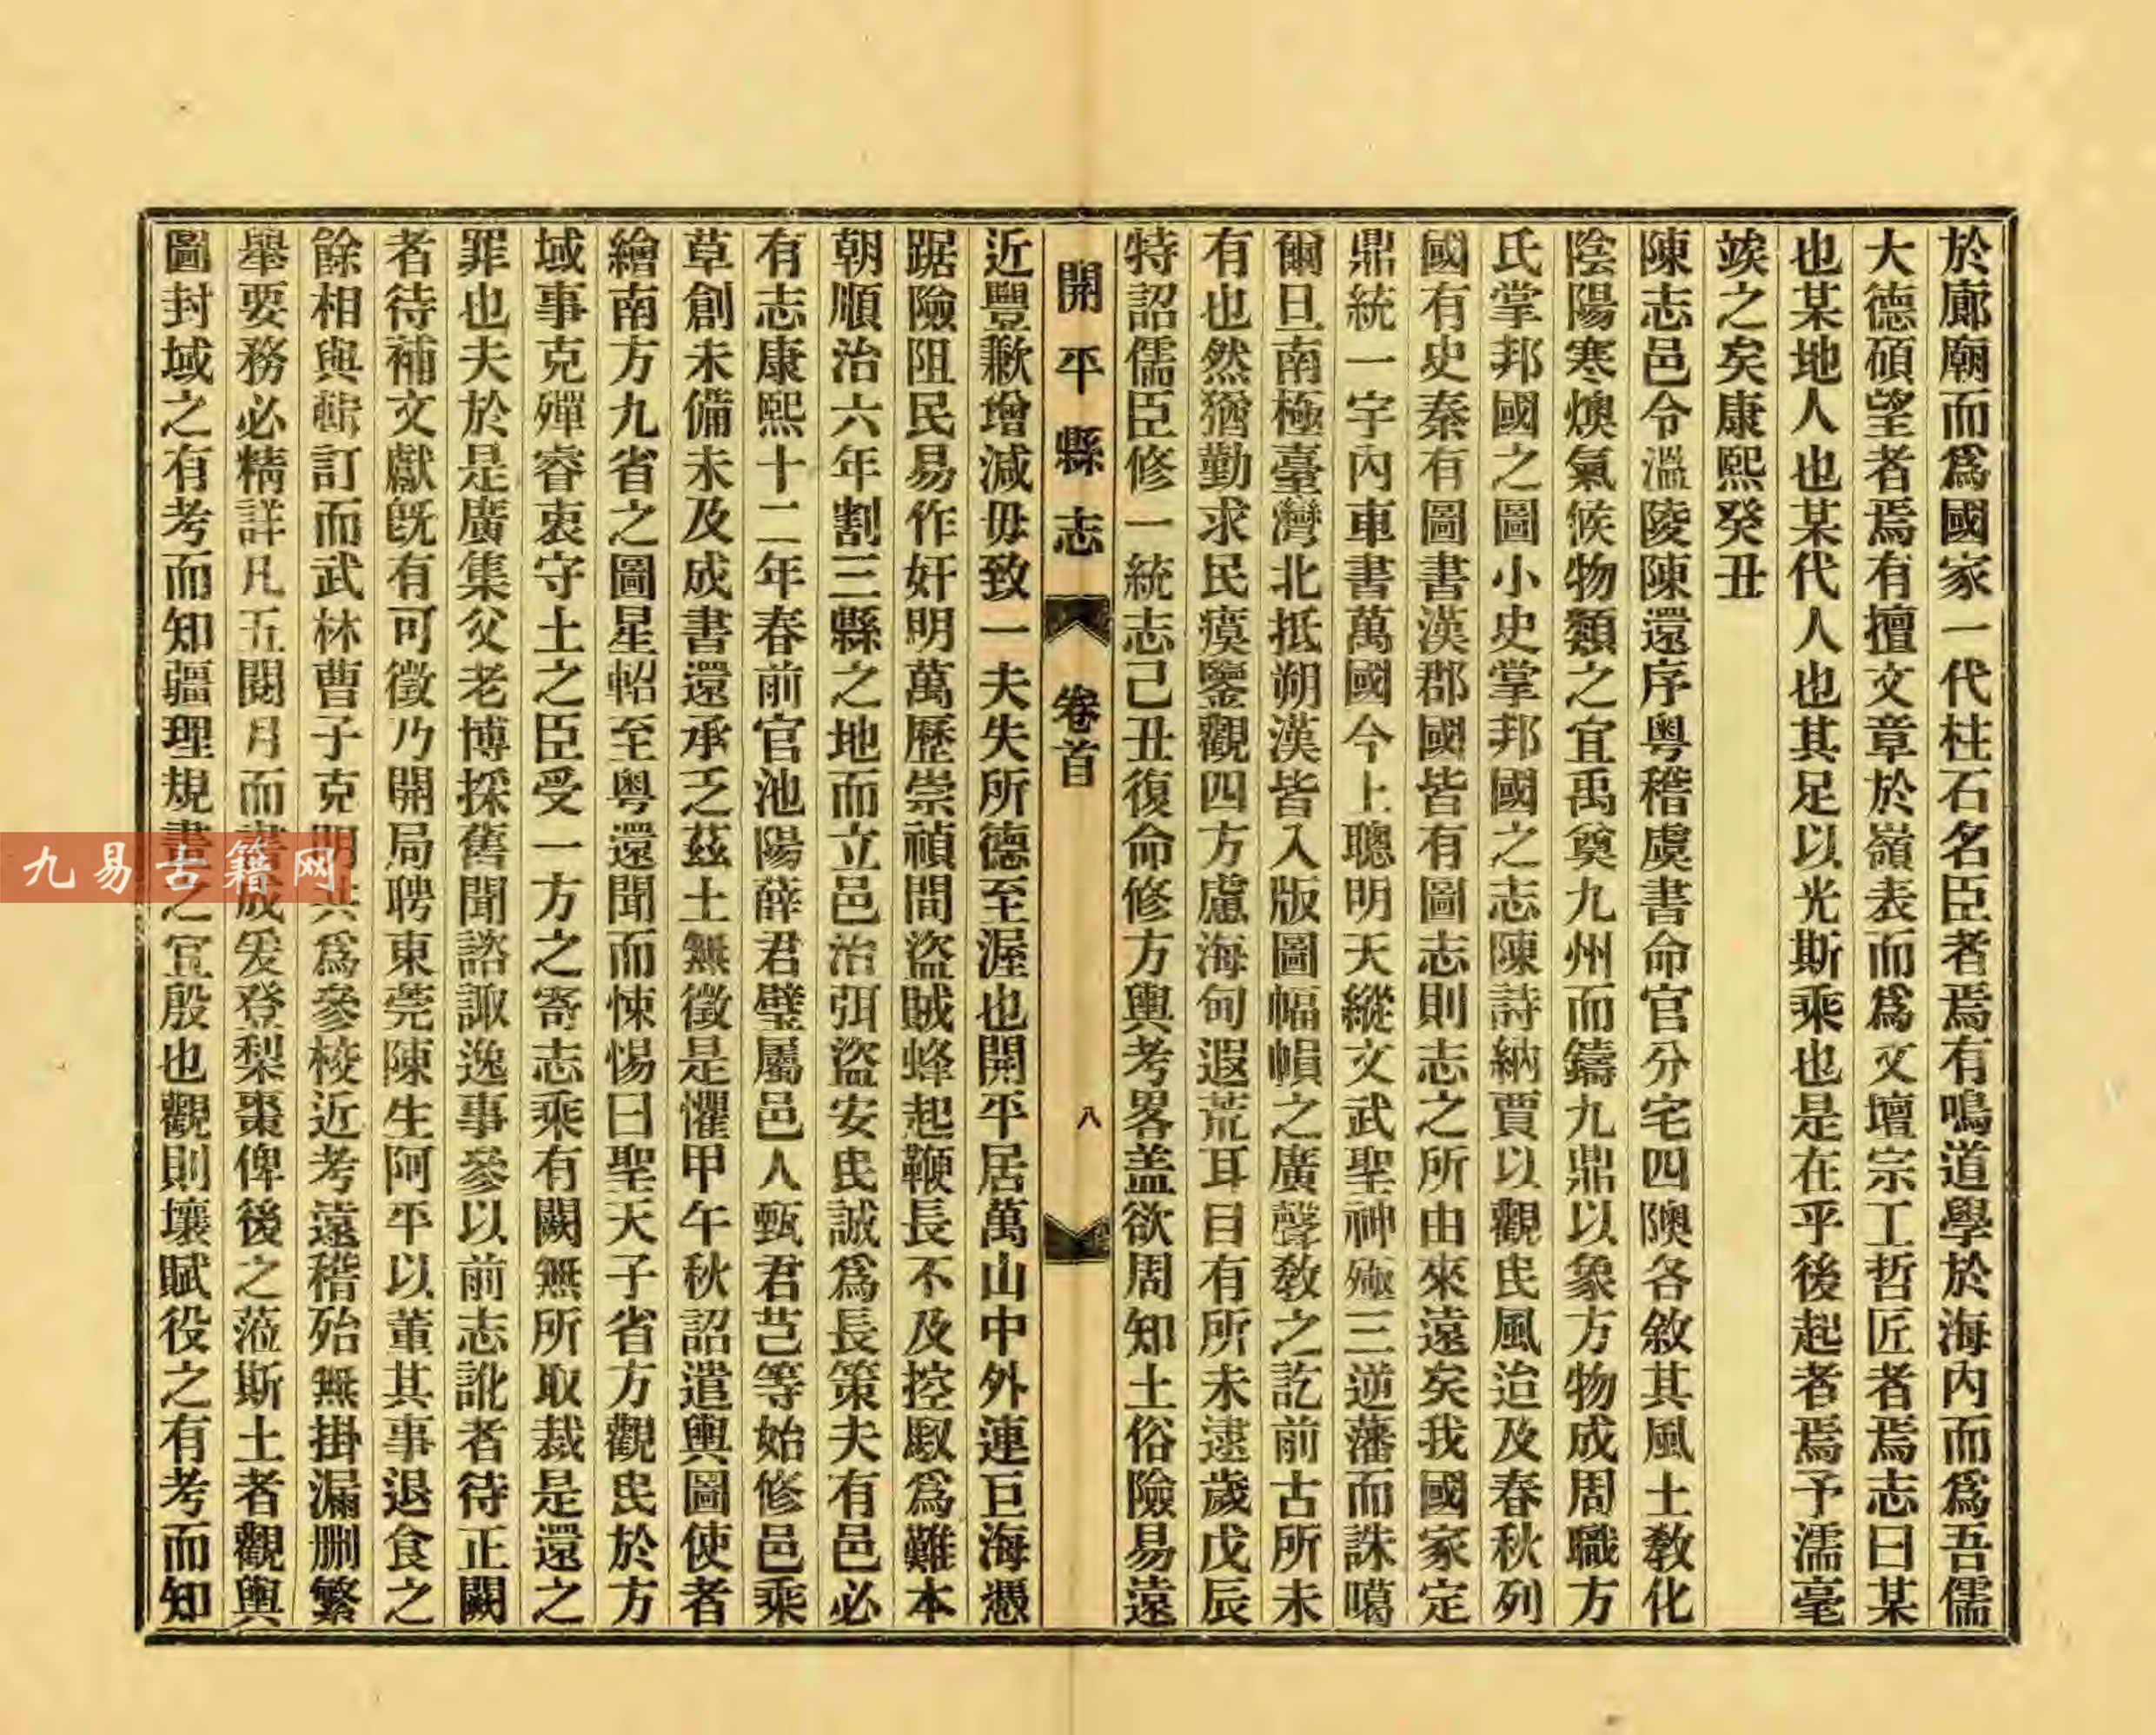 於廊廟而爲國家一代柱石名臣者焉有鳴道學於海內而爲吾儒
大德碩望者焉有擅文章於嶺表而爲文壇宗工哲匠者焉志曰某
也某地人也某代人也其足以光斯乘也是在乎後起者焉予濡毫
竢之矣康熙癸丑
陳志邑令溫陵陳還序粤稽虞書命官分宅四隩各敘其風土敎化
陰陽寒燠氣候物類之宜禹奠九州而鑄九鼎以象方物成周職方
氏掌邦國之圖小史掌邦國之志陳詩納賈以觀民風迨及春秋列
國有史秦有圖書漢郡國皆有圖志則志之所由來遠矣我國家定
鼎統一宇內車書萬國今上聰明天縱文武聖神殛三逆藩而誅噶
爾旦南極臺灣北抵朔漠皆入版圖幅帽之廣聲敎之訖前古所未
有也然猶勤求民瘼鑒觀四方慮海甸遐荒耳目有所未逮歲戊辰
特詔儒臣修一統志己丑復命修方輿考畧盖欲周知土俗險易遠
開平縣志 卷首 八
近豐歉增減毋致一夫失所德至渥也開平居萬山中外連巨海憑
踞險阻民易作奸明萬歷崇禎間盜賊蜂起鞭長不及控馭爲難本
朝順治六年割三縣之地而立邑治弭盜安民誠爲長策夫有邑必
有志康熙十二年春前官池陽薛君璧屬邑人甄君芑等始修邑乘
草創未備未及成書還承乏茲土無徵是懼甲午秋詔遣輿圖使者
繪南方九省之圖星軺至粤還聞而悚惕曰聖天子省方觀民於方
域事克殫睿衷守土之臣受一方之寄志乘有闕無所取裁是還之
罪也夫於是廣集父老博採舊聞諮諏逸事參以前志訛者待正闕
者待補文獻旣有可徵乃開局聘東莞陳生阿平以董其事退食之
餘相與輯訂而武林曹子克明共爲參校近考遠稽殆無掛漏删繁
舉要務必精詳凡五閱月而書成爰登梨棗俾後之蒞斯土者觀輿
圖封域之有考而知疆理規畫之宜殷也觀則壤賦役之有考而知
九易古籍网